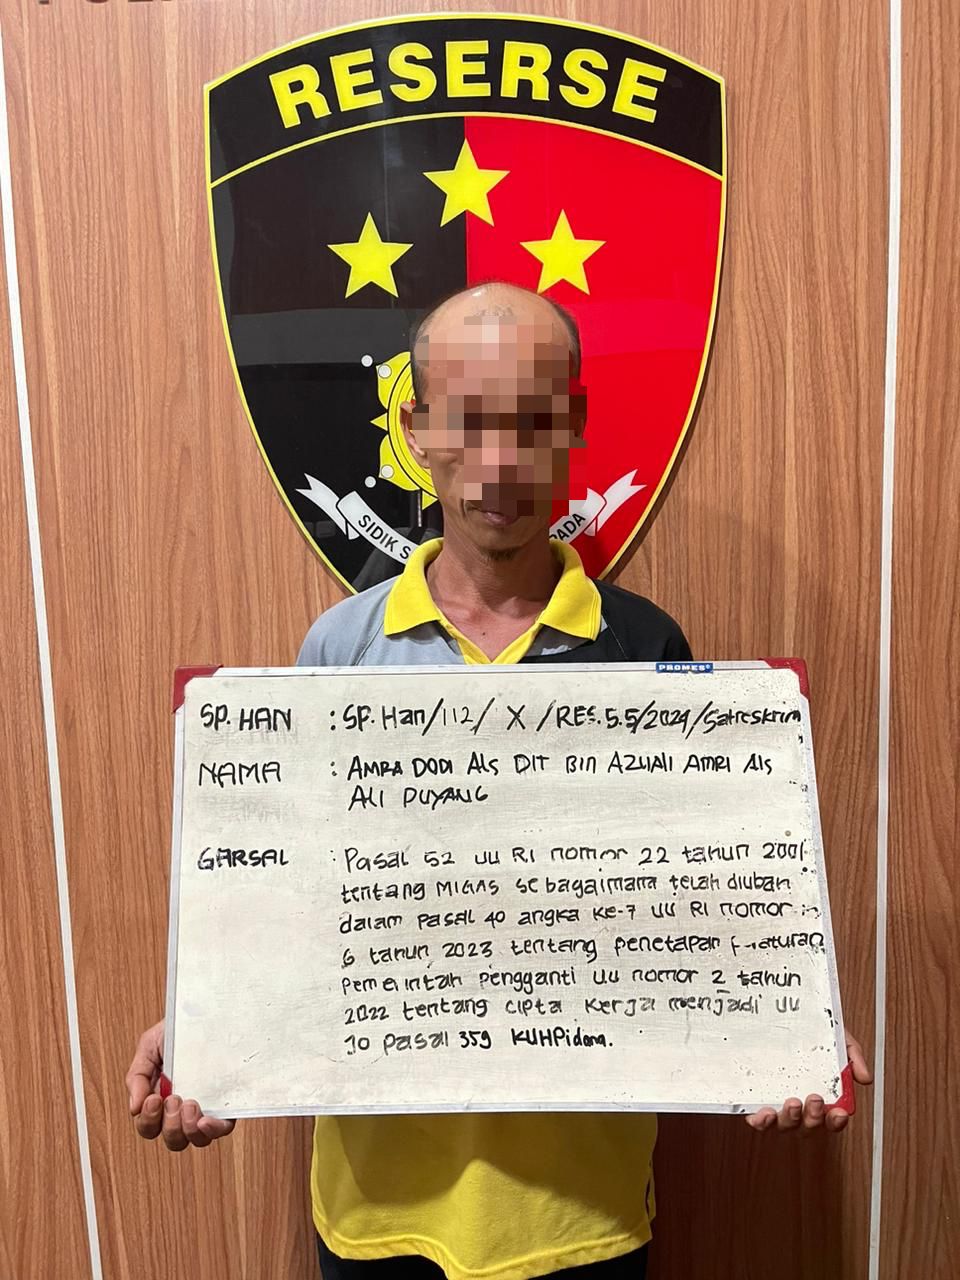 RESERSE
SIDIK S
PADA
PROMES
SP. HAN : SP. Han/112/ X /RES.5.5/2024/Satreskrim
NAMA : AMRA DODI Als DIT Bin AZUALI AMRI Als
ALI PUYANG
GARSAL : Pasal 52 UU RI nomor 22 tahun 2001
tentang MIGAS sebagaimana telah diubah
dalam pasal 40 angka ke-7 UU RI nomor
6 tahun 2023 tentang penetapan
pemerintah pengganti UU nomor 2 tahun
2022 tentang cipta kerja menjadi UU
Jo pasal 359 KUHPidana.